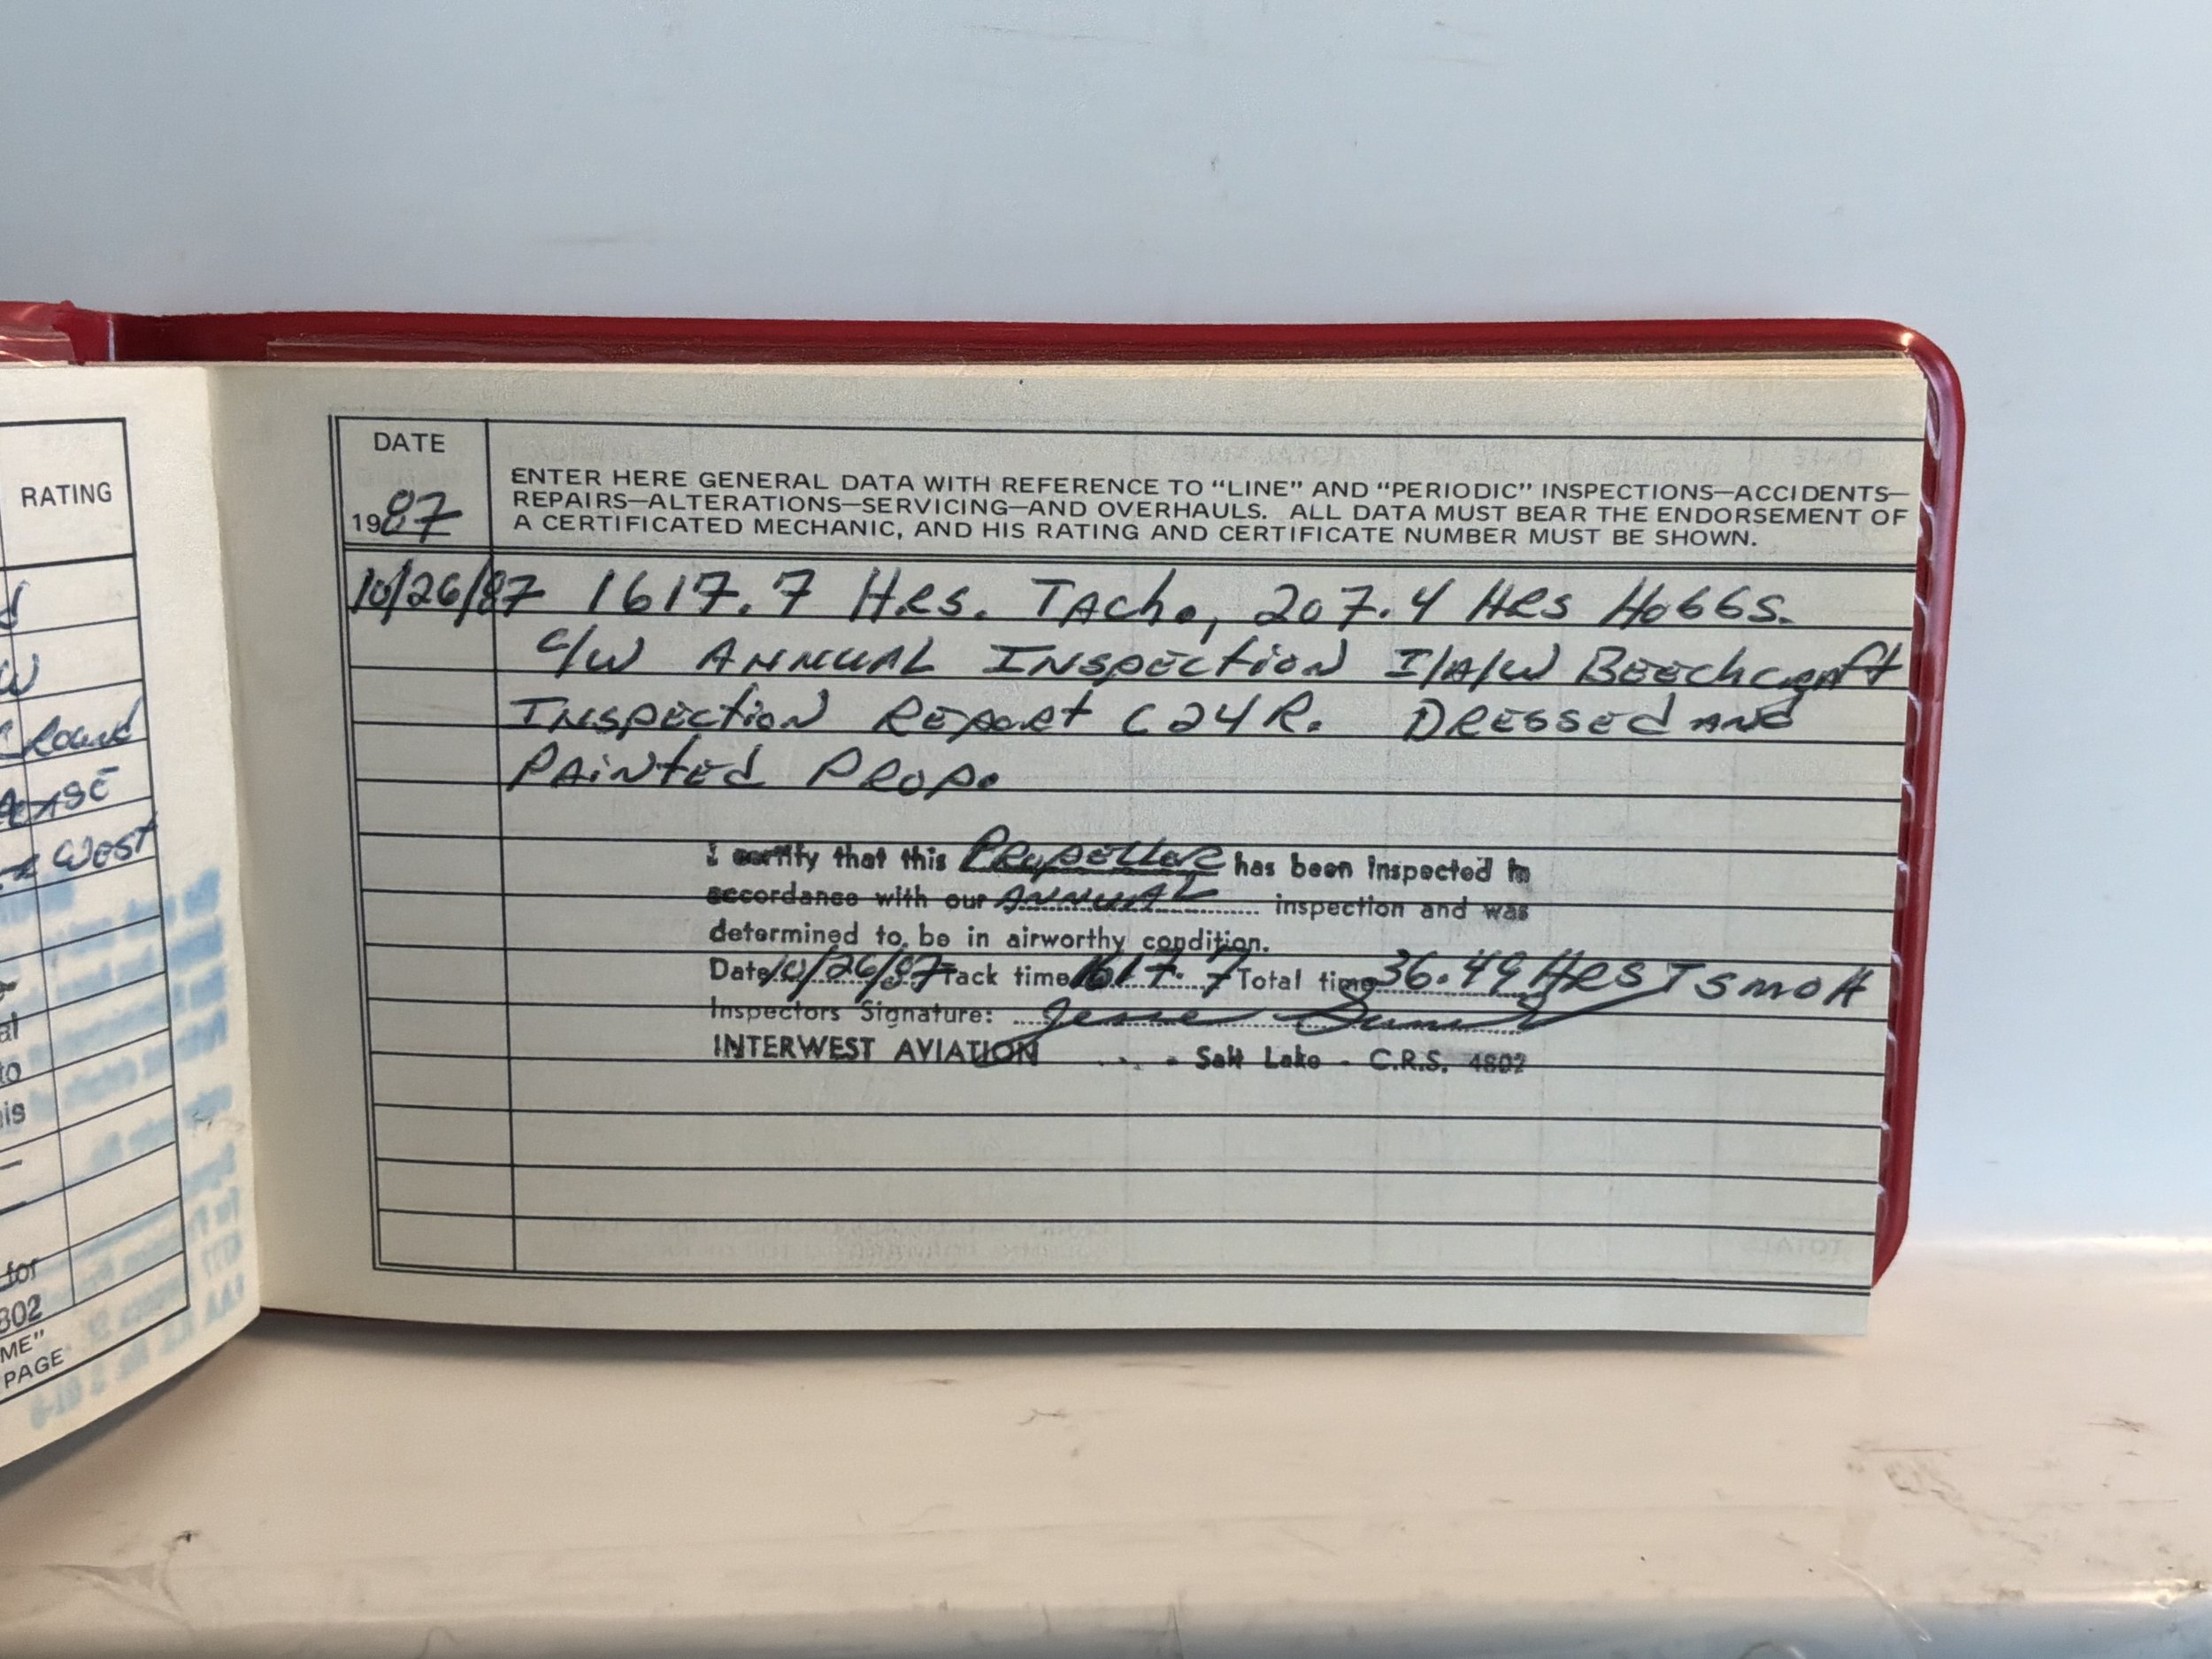 RATING
d
W
Round
EASE
West
al
to
his
for
802
ME"
PAGE
DATE
1987
ENTER HERE GENERAL DATA WITH REFERENCE TO "LINE" AND "PERIODIC" INSPECTIONS—ACCIDENTS—
REPAIRS—ALTERATIONS—SERVICING—AND OVERHAULS. ALL DATA MUST BEAR THE ENDORSEMENT OF
A CERTIFICATED MECHANIC, AND HIS RATING AND CERTIFICATE NUMBER MUST BE SHOWN.
10/26/87 1617.7 Hrs. Tacho, 207.4 Hrs Hobbs.
C/W Annual Inspection I/A/W Beechcraft
Inspection Report C24R. Dressed and
Painted Prop.
I certify that this Propeller has been inspected in
accordance with our Annual inspection and was
determined to be in airworthy condition.
Date 10/26/87 Tack time 1617.7 Total time 36.49 Hrs TSMOH
Inspectors Signature: Jesse
INTERWEST AVIATION - Salt Lake - C.R.S. 4802